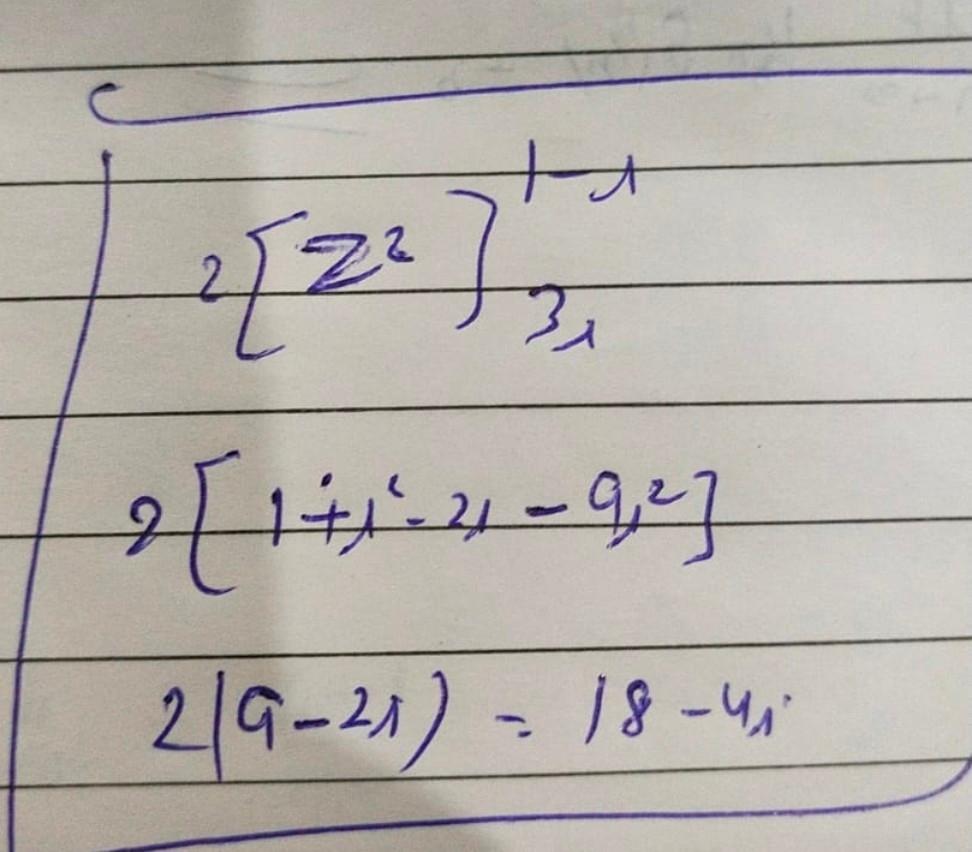 2[z²]₃ᵢ¹⁻ⁱ
2[1+i²-2i-9i²]
2(9-2i) = 18-4i